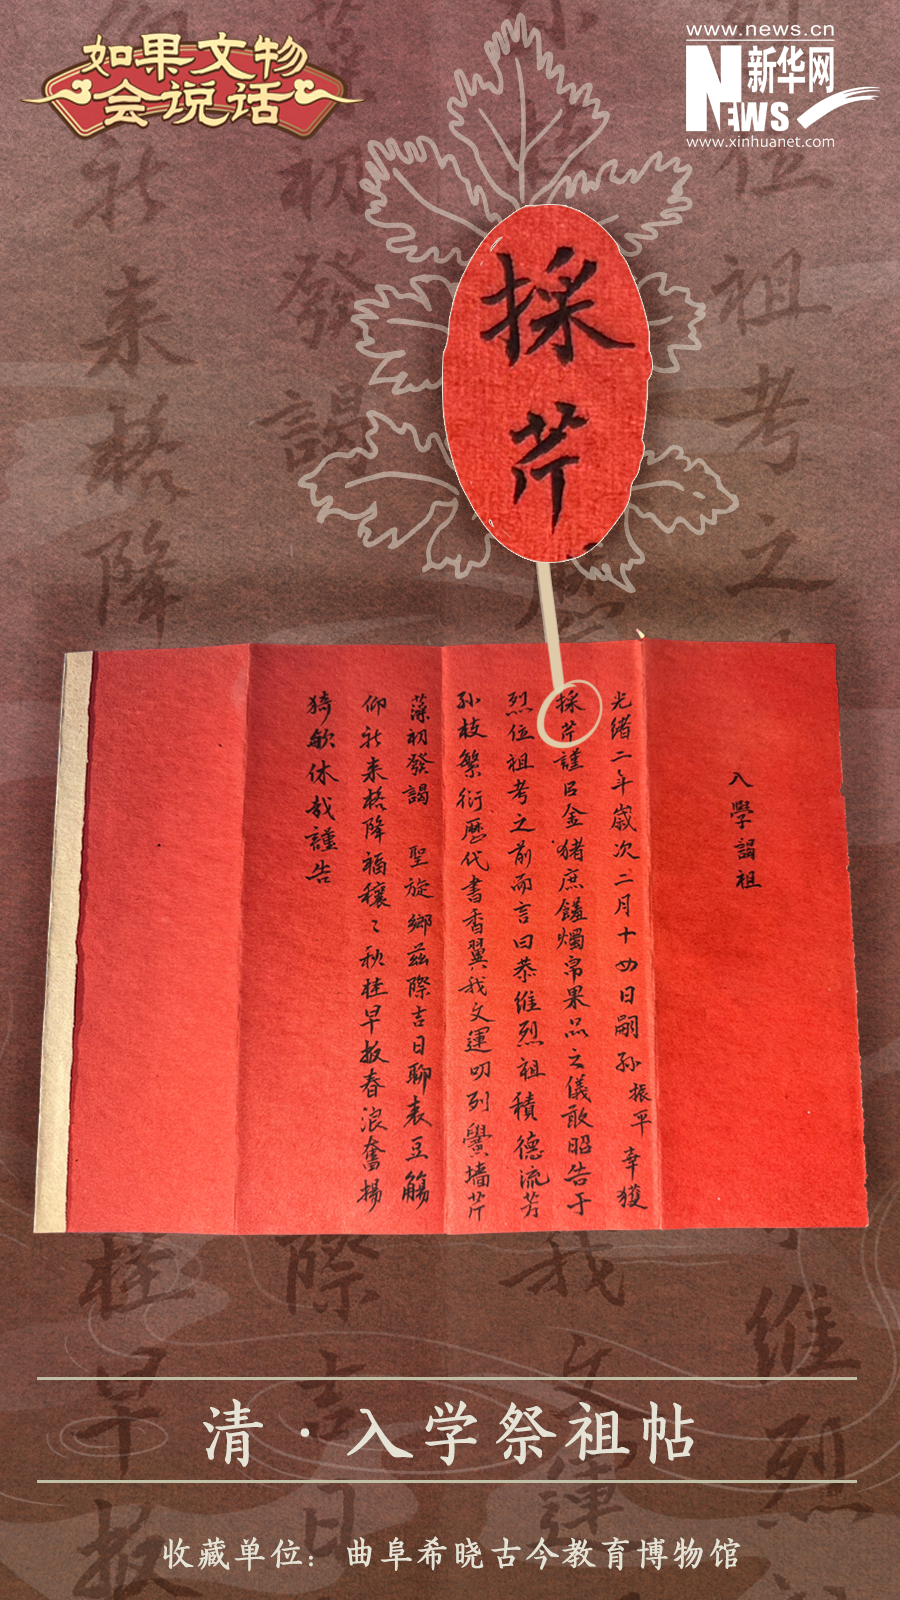 如果文物
会说话
www.news.cn
新华网
NEWS
www.xinhuanet.com
採芹
入學謁祖
光緒二年歲次二月十四日嗣孫振平幸獲
採芹謹以金猪庶饈燭帛果品之儀敢昭告于
烈位祖考之前而言曰恭維烈祖積德流芳
孙枝繁衍歷代書香翼我文運叨列黌墙芹
藻初發謁 聖旋鄉茲際吉日聊表豆觴
仰祈来格降福穰〻秋桂早扳春浪奮揚
猗欤休哉謹告
清·入学祭祖帖
收藏单位：曲阜希晓古今教育博物馆